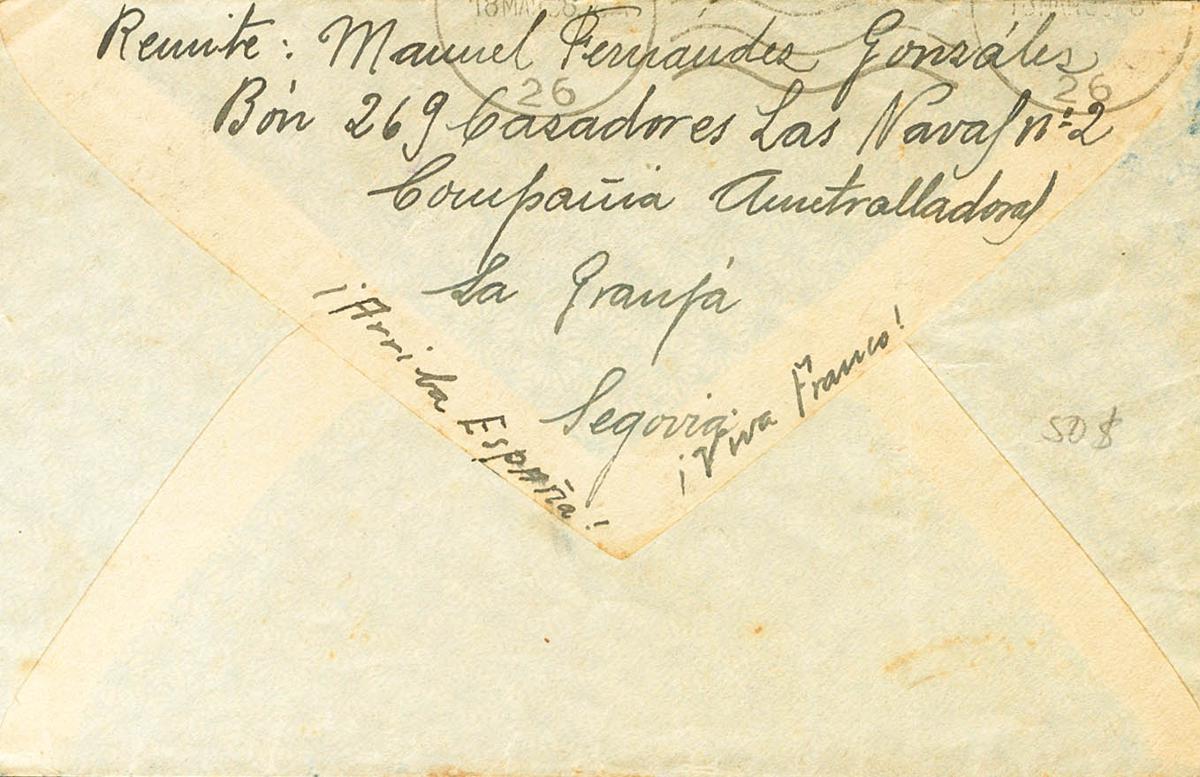 18 MAR 38
26
26
Remite: Manuel Fernández Gonzáles
Bón 269 Cazadores Las Navas nº 2
Compañia Ametralladoras
La Granjá
Segovia
¡Arriba España!
¡Viva Franco!
50$